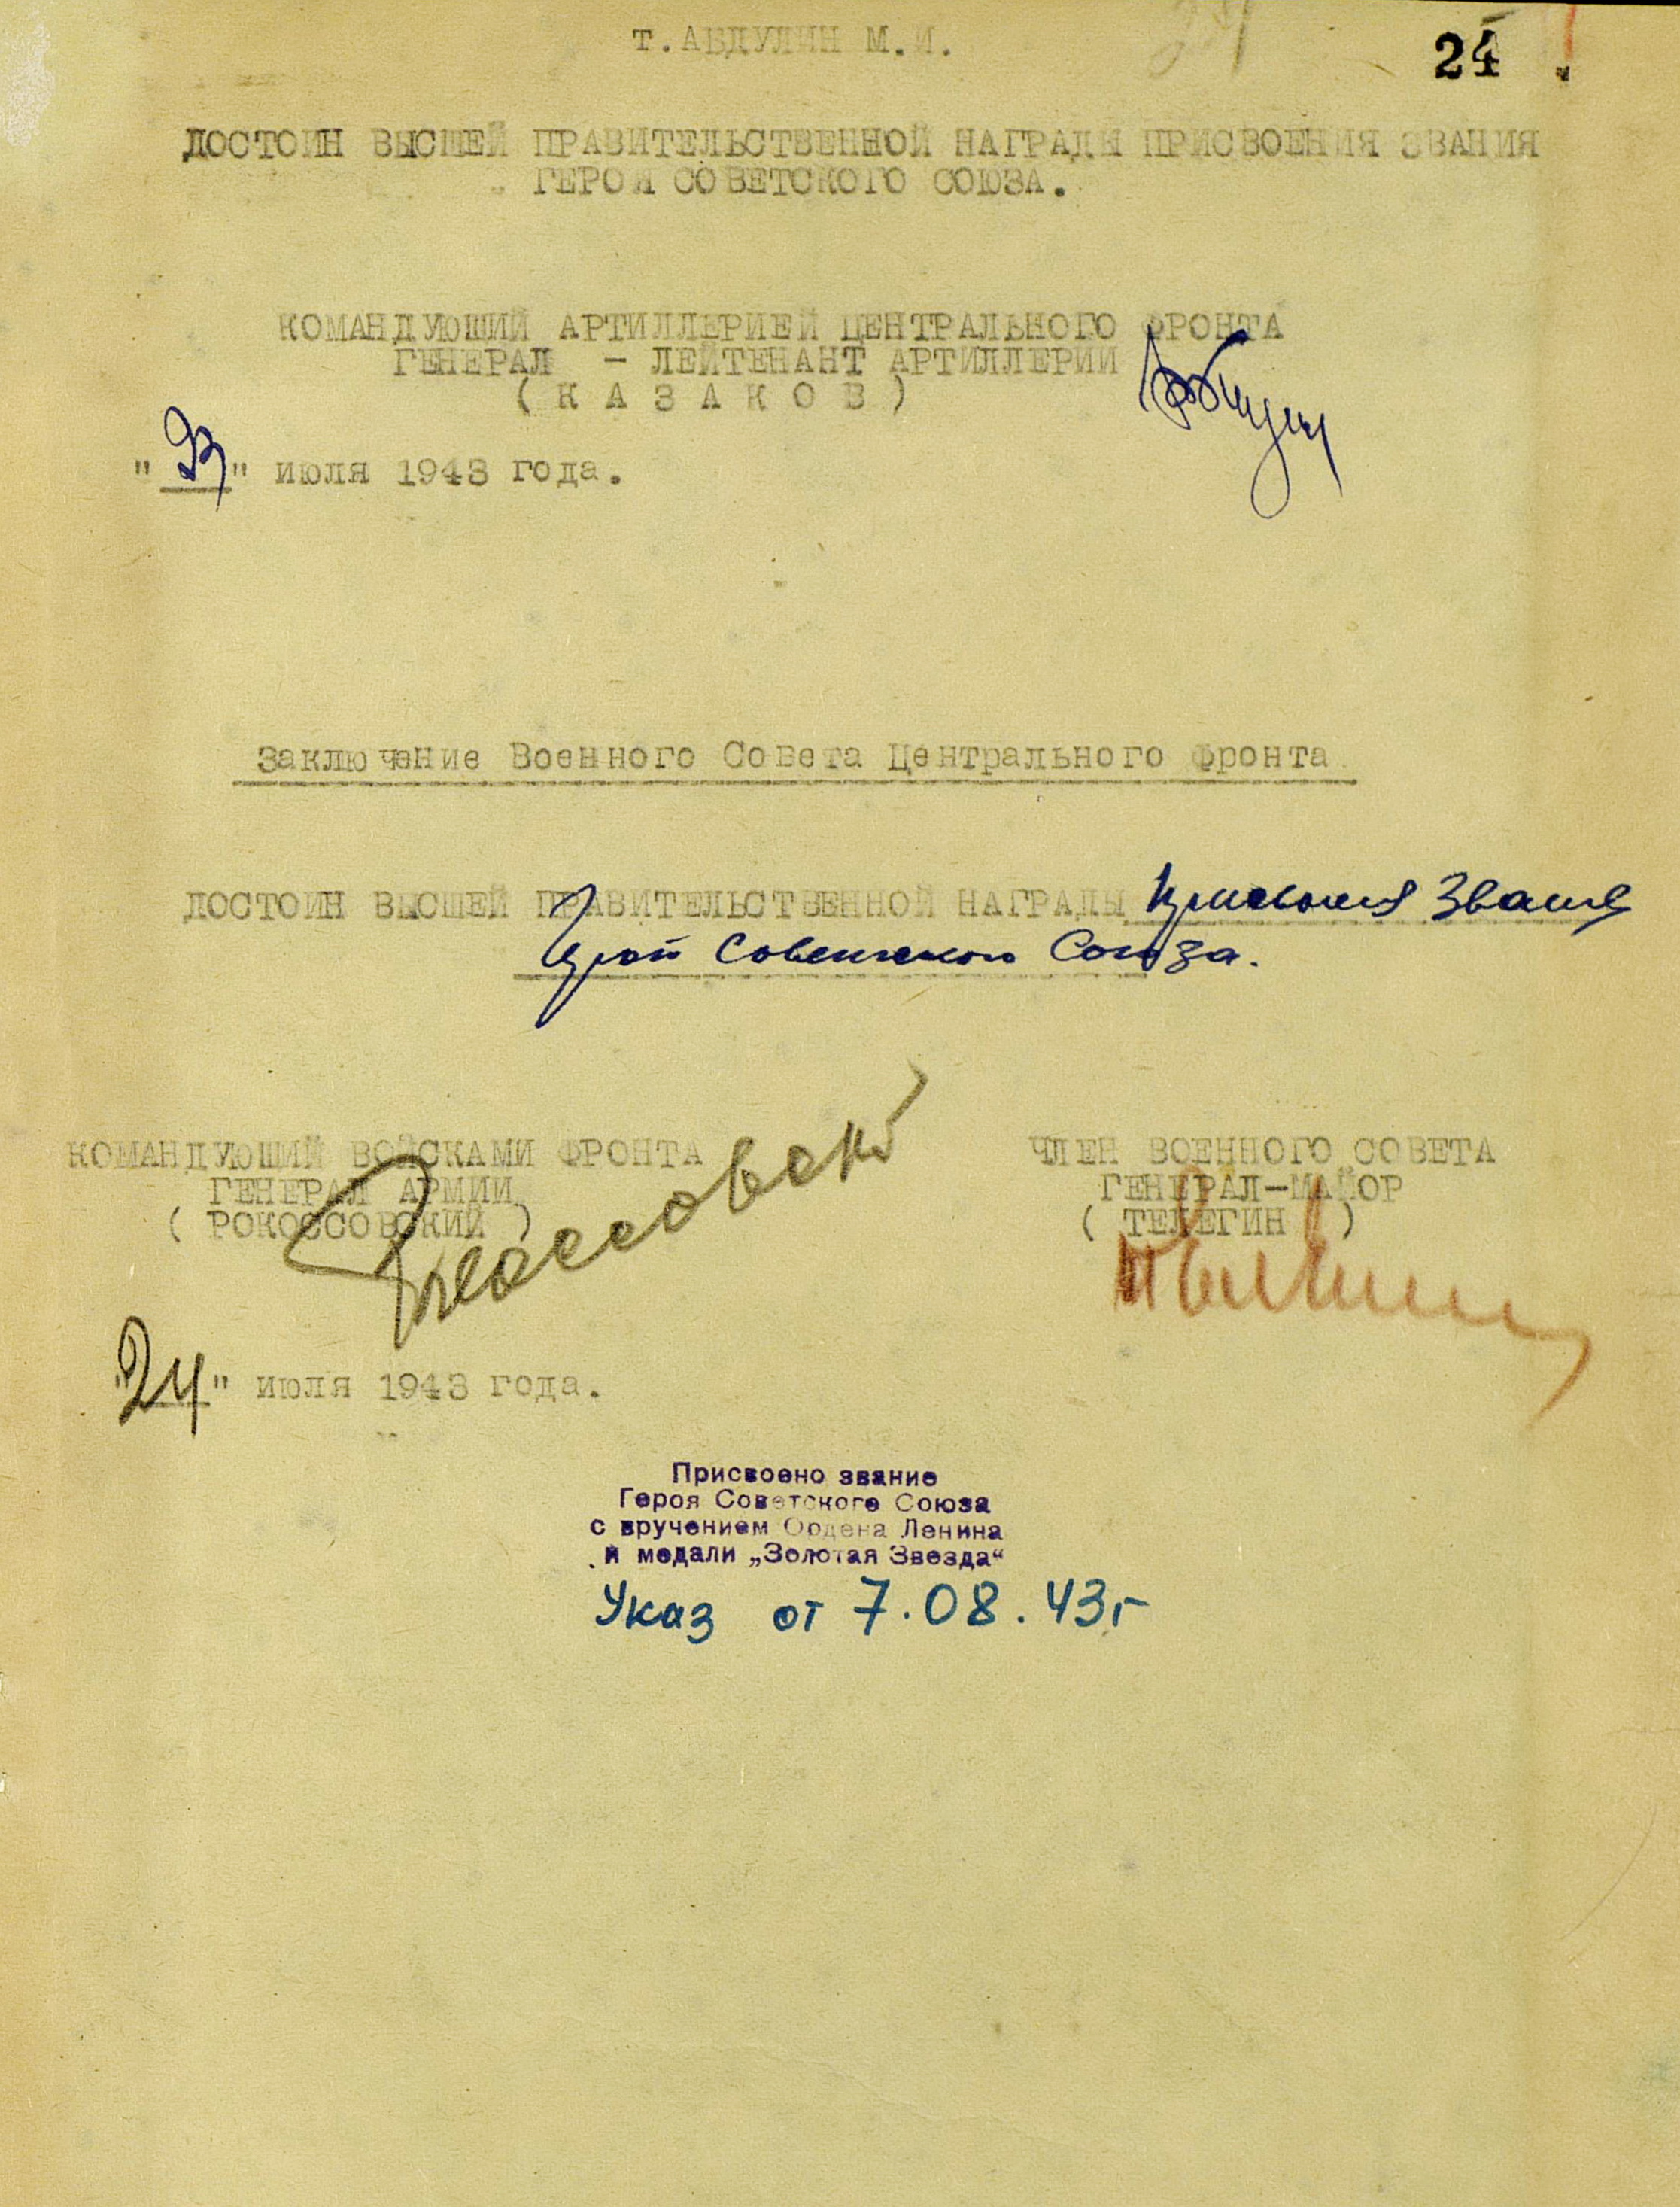 т.АБДУЛИН М.И.
24
ДОСТОИН ВЫСШЕЙ ПРАВИТЕЛЬСТВЕННОЙ НАГРАДЫ ПРИСВОЕНИЯ ЗВАНИЯ
ГЕРОЯ СОВЕТСКОГО СОЮЗА.
КОМАНДУЮЩИЙ АРТИЛЛЕРИЕЙ ЦЕНТРАЛЬНОГО ФРОНТА
ГЕНЕРАЛ - ЛЕЙТЕНАНТ АРТИЛЛЕРИИ
( К А З А К О В )
"23" июля 1943 года.
Заключение Военного Совета Центрального фронта
ДОСТОИН ВЫСШЕЙ ПРАВИТЕЛЬСТВЕННОЙ НАГРАДЫ присвоения Звания
Героя Советского Союза.
КОМАНДУЮЩИЙ ВОЙСКАМИ ФРОНТА
ГЕНЕРАЛ АРМИИ
( РОКОССОВСКИЙ )
Рокоссовский
ЧЛЕН ВОЕННОГО СОВЕТА
ГЕНЕРАЛ-МАЙОР
( ТЕЛЕГИН )
"24" июля 1943 года.
Присвоено звание
Героя Советского Союза
с вручением Ордена Ленина
и медали „Золотая Звезда"
Указ от 7.08.43г